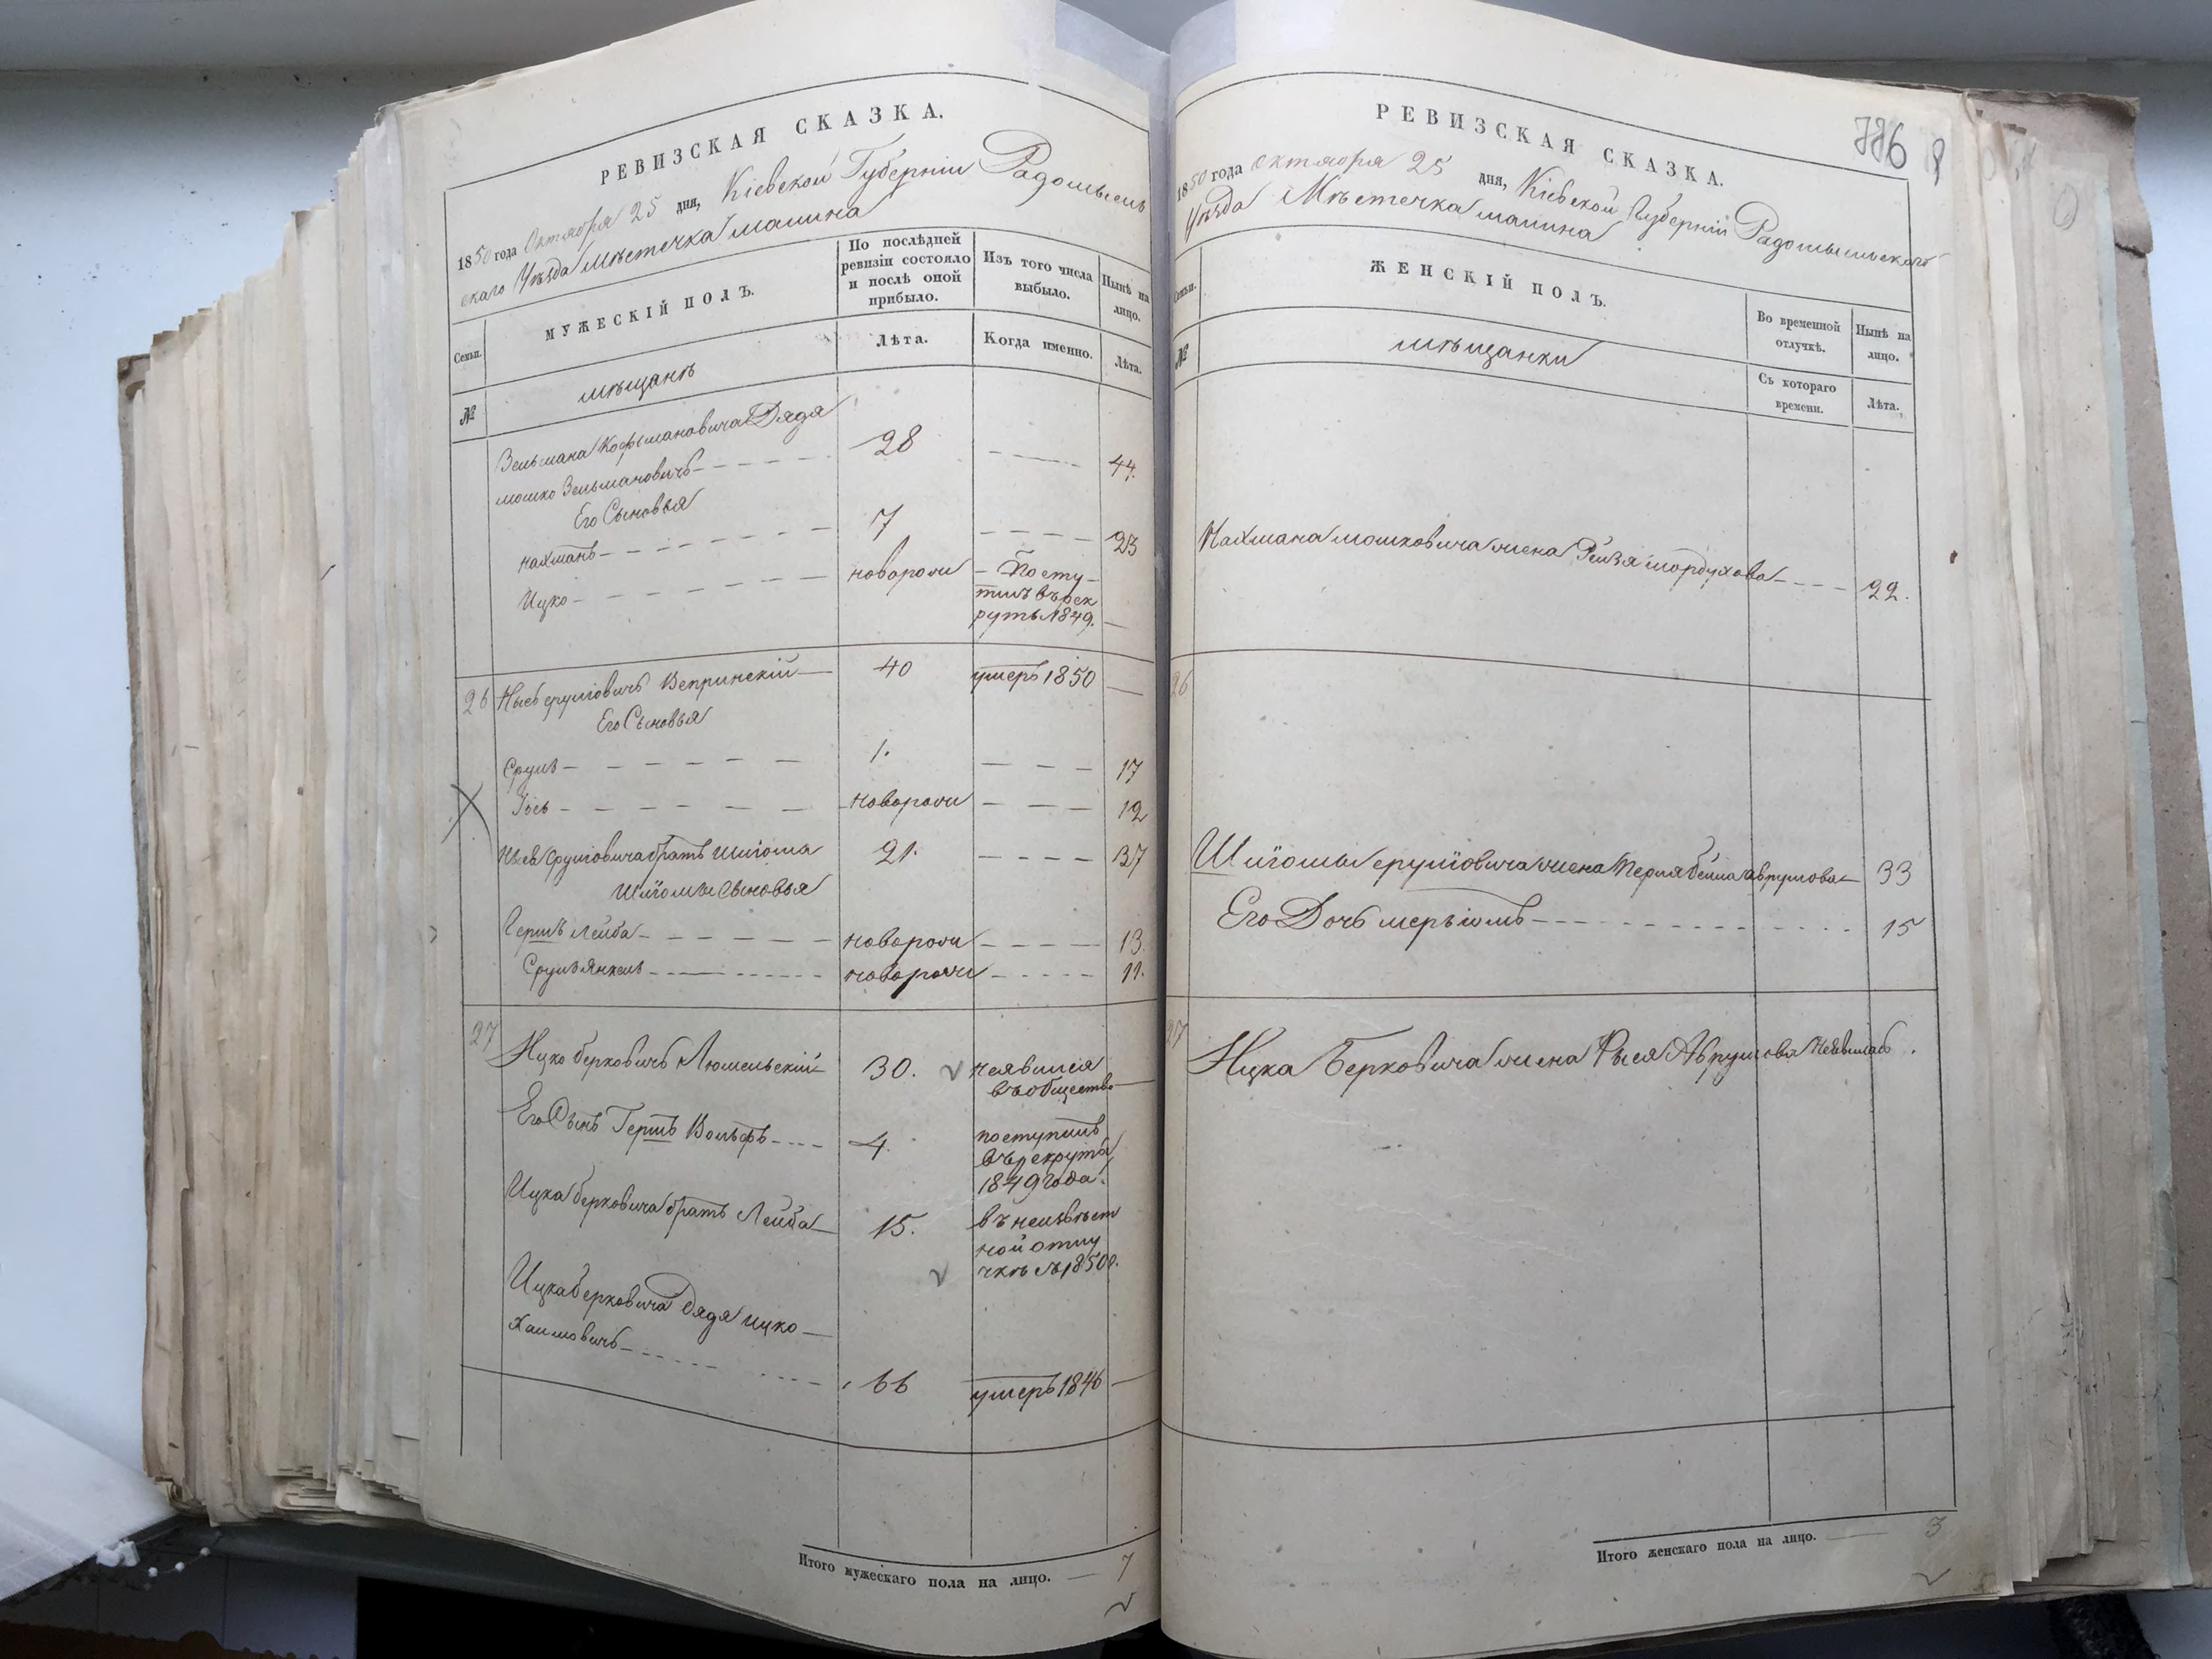 РЕВИЗСКАЯ СКАЗКА.
1850 года Октября 25 дня, Кіевской Губерніи Радомысль
скаго Уѣзда Мѣстечка Малина
Семьи.
МУЖЕСКІЙ ПОЛЪ.
По послѣдней
ревизіи состояло
и послѣ оной
прибыло.
Изъ того числа
выбыло.
Нынѣ на
лицо.
№
мѣщанѣ
Лѣта.
Когда именно.
Лѣта.
Зельмана Кофмановича Дядя
мошко Зельмановичъ 28 44.
Его Сыновья
нахманъ 7 23
Ицко новорож Посту
пилъ въ рек
руты 1849.
26 Сруліовичъ Вепринскій 40 умеръ 1850
Его Сыновья
Сруль 1. 17
Іось новорож 12
Сруліовича братъ Шліома 21. 37
Шліомы Сыновья
Гершъ Лейба новорож 13.
Сруль Янкель новорож 11.
27 Ицко Берковичъ 30. неявился
въ общество
Его Сынъ Гершъ Вольфъ 4. поступилъ
въ рекруты
1849 года.
Ицка Берковича братъ Лейба 15. въ неизвѣст
ной отлу
чкѣ съ 1850 г.
Ицка Берковича Дядя Ицко
Хаимовичъ 66 умеръ 1846
Итого мужескаго пола на лицо. 7
РЕВИЗСКАЯ СКАЗКА.
786
1850 года Октября 25 дня, Кіевской Губерніи Радомысльскаго
Уѣзда Мѣстечка Малина
Семьи.
ЖЕНСКІЙ ПОЛЪ.
Во временной
отлучкѣ.
Нынѣ на
лицо.
№
мѣщанки
Съ котораго
времени.
Лѣта.
Нахмана Мошковича жена Рейзя мордухова 22.
26
Шліомы Сруліовича жена Перля Бейла Аврумова 33
Его Дочь меръіомъ 15
27 Ицка Берковича жена Рыся Аврумова Неявилась.
Итого женскаго пола на лицо. 3